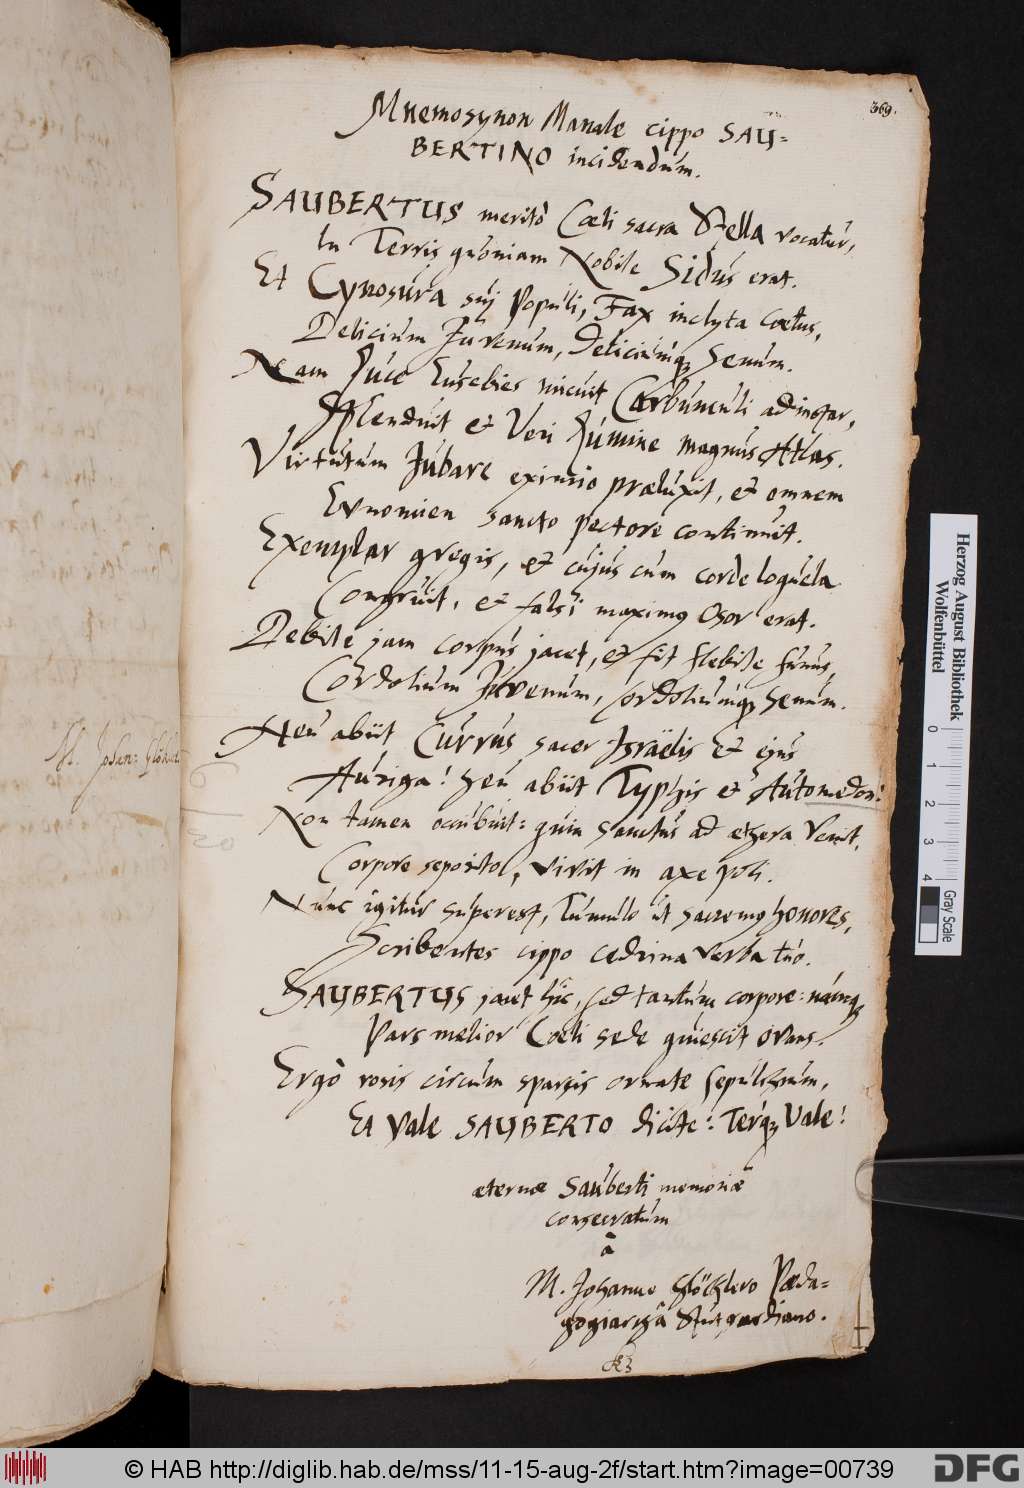 369.
Mnemosynon Manale cippo SAU-
BERTINO incidendum.
SAUBERTUS meritò Cœli sacra Stella vocatur,
In Terris quoniam Nobile Sidus erat.
Et Cynosura suj Populi, Fax inclyta Cœtus,
Delicium Juvenum, deliciumq; Senum.
Nam Luce Eusebies micuit Carbunculi ad instar,
Splenduit et Veri Lumine magnus Atlas.
Virtutum Jubare eximio præluxit, et omnem
Eunomien sancto pectore continuit.
Exemplar gregis, et cujus cum corde loquela
Congruit, et falsi maximus Osor erat.
Debile jam corpus jacet, et fit flebile funus,
Cordolium Juvenum, Cordoliumq; Senum.
Heu abiit Currus sacer Israëlis et ejus
Auriga! heu abiit Typhis et Automedon!
Non tamen occubuit: quin sanctus ad æthera venit,
Corpore seposito, vivit in axe poli.
Nunc igitur superest, Tumulo ut sacremus honores,
Scribentes cippo cedrina verba tuo.
SAUBERTUS jacet hîc, sed tantum corpore: namq;
Pars melior Cœli sede quiescit ovans.
Ergò rosis circum sparsis ornate sepulchrum,
Et Vale SAUBERTO dicite: Terq; Vale!
æternæ Sauberti memoriæ
consecratum
â
M. Johanne Glöcklero Pæda-
gogiarchâ Stutgardiano.
M. Johan: Glökler
Herzog August Bibliothek
Wolfenbüttel
0 1 2 3 4
Gray Scale
© HAB http://diglib.hab.de/mss/11-15-aug-2f/start.htm?image=00739
DFG